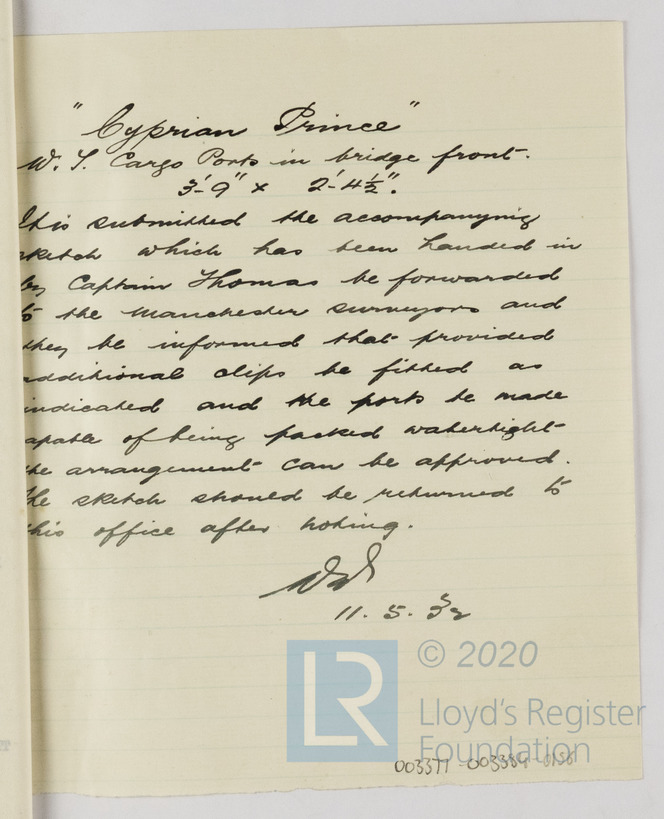 "Cyprian Prince"
W. T. Cargo Ports in bridge front.
3'-9" x 2'-4½".
It is submitted the accompanying
sketch which has been handed in
by Captain Thomas be forwarded
to the Manchester surveyors and
they be informed that provided
additional clips be fitted as
indicated and the ports be made
capable of being packed watertight
the arrangement can be approved.
The sketch should be returned to
this office after noting.
11. 5. 32
LR
© 2020
Lloyd's Register
Foundation
003377-003384-0156